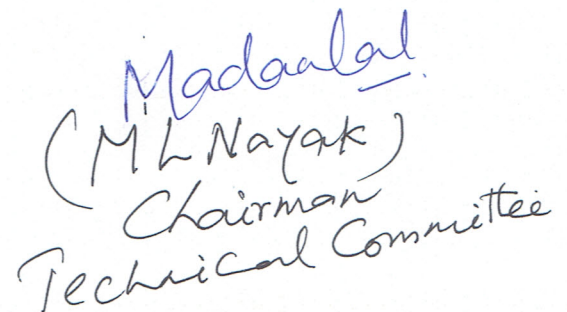 Madaalal
(M L Nayak)
Chairman
Technical Committee